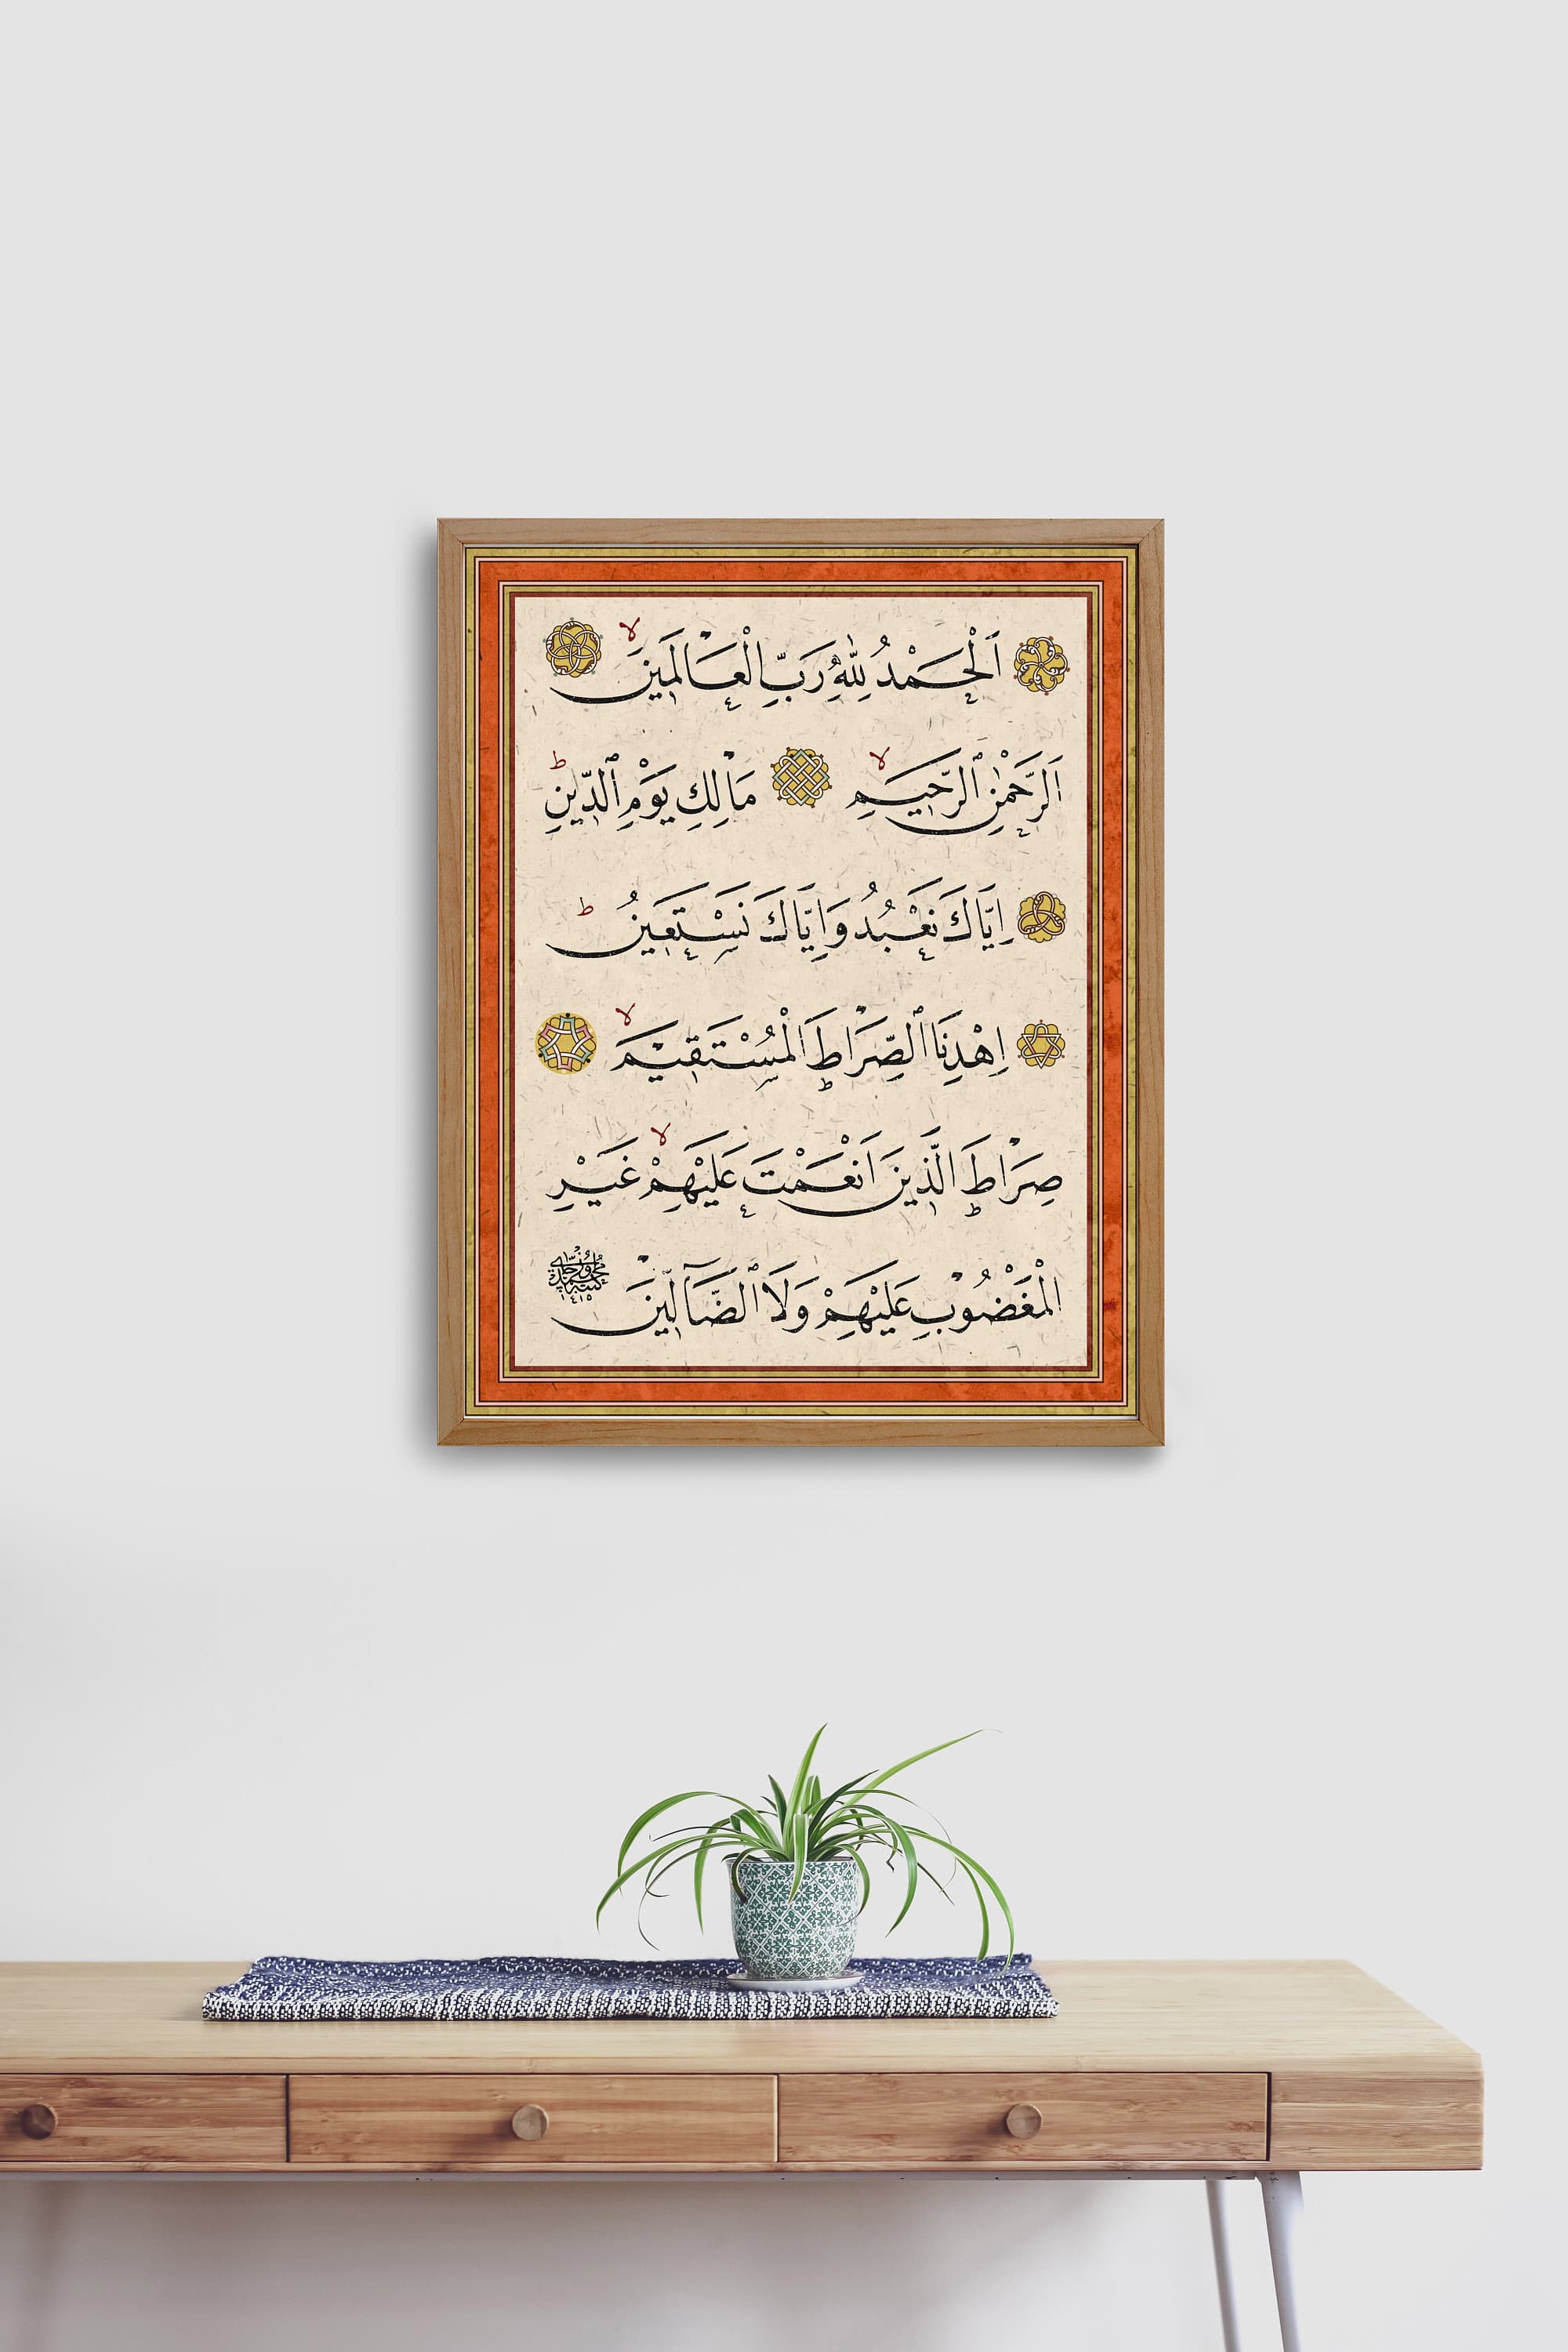 اَلْحَمْدُ لِلّٰهِ رَبِّ الْعَالَمٖينَ ۙ
اَلرَّحْمٰنِ الرَّحٖيمِ ۙ مَالِكِ يَوْمِ الدّٖينِ ۜ
اِيَّاكَ نَعْبُدُ وَاِيَّاكَ نَسْتَعٖينُ ۜ
اِهْدِنَا الصِّرَاطَ الْمُسْتَقٖيمَ ۙ
صِرَاطَ الَّذٖينَ اَنْعَمْتَ عَلَيْهِمْ ۙ غَيْرِ
الْمَغْضُوبِ عَلَيْهِمْ وَلَا الضَّٓالّٖينَ